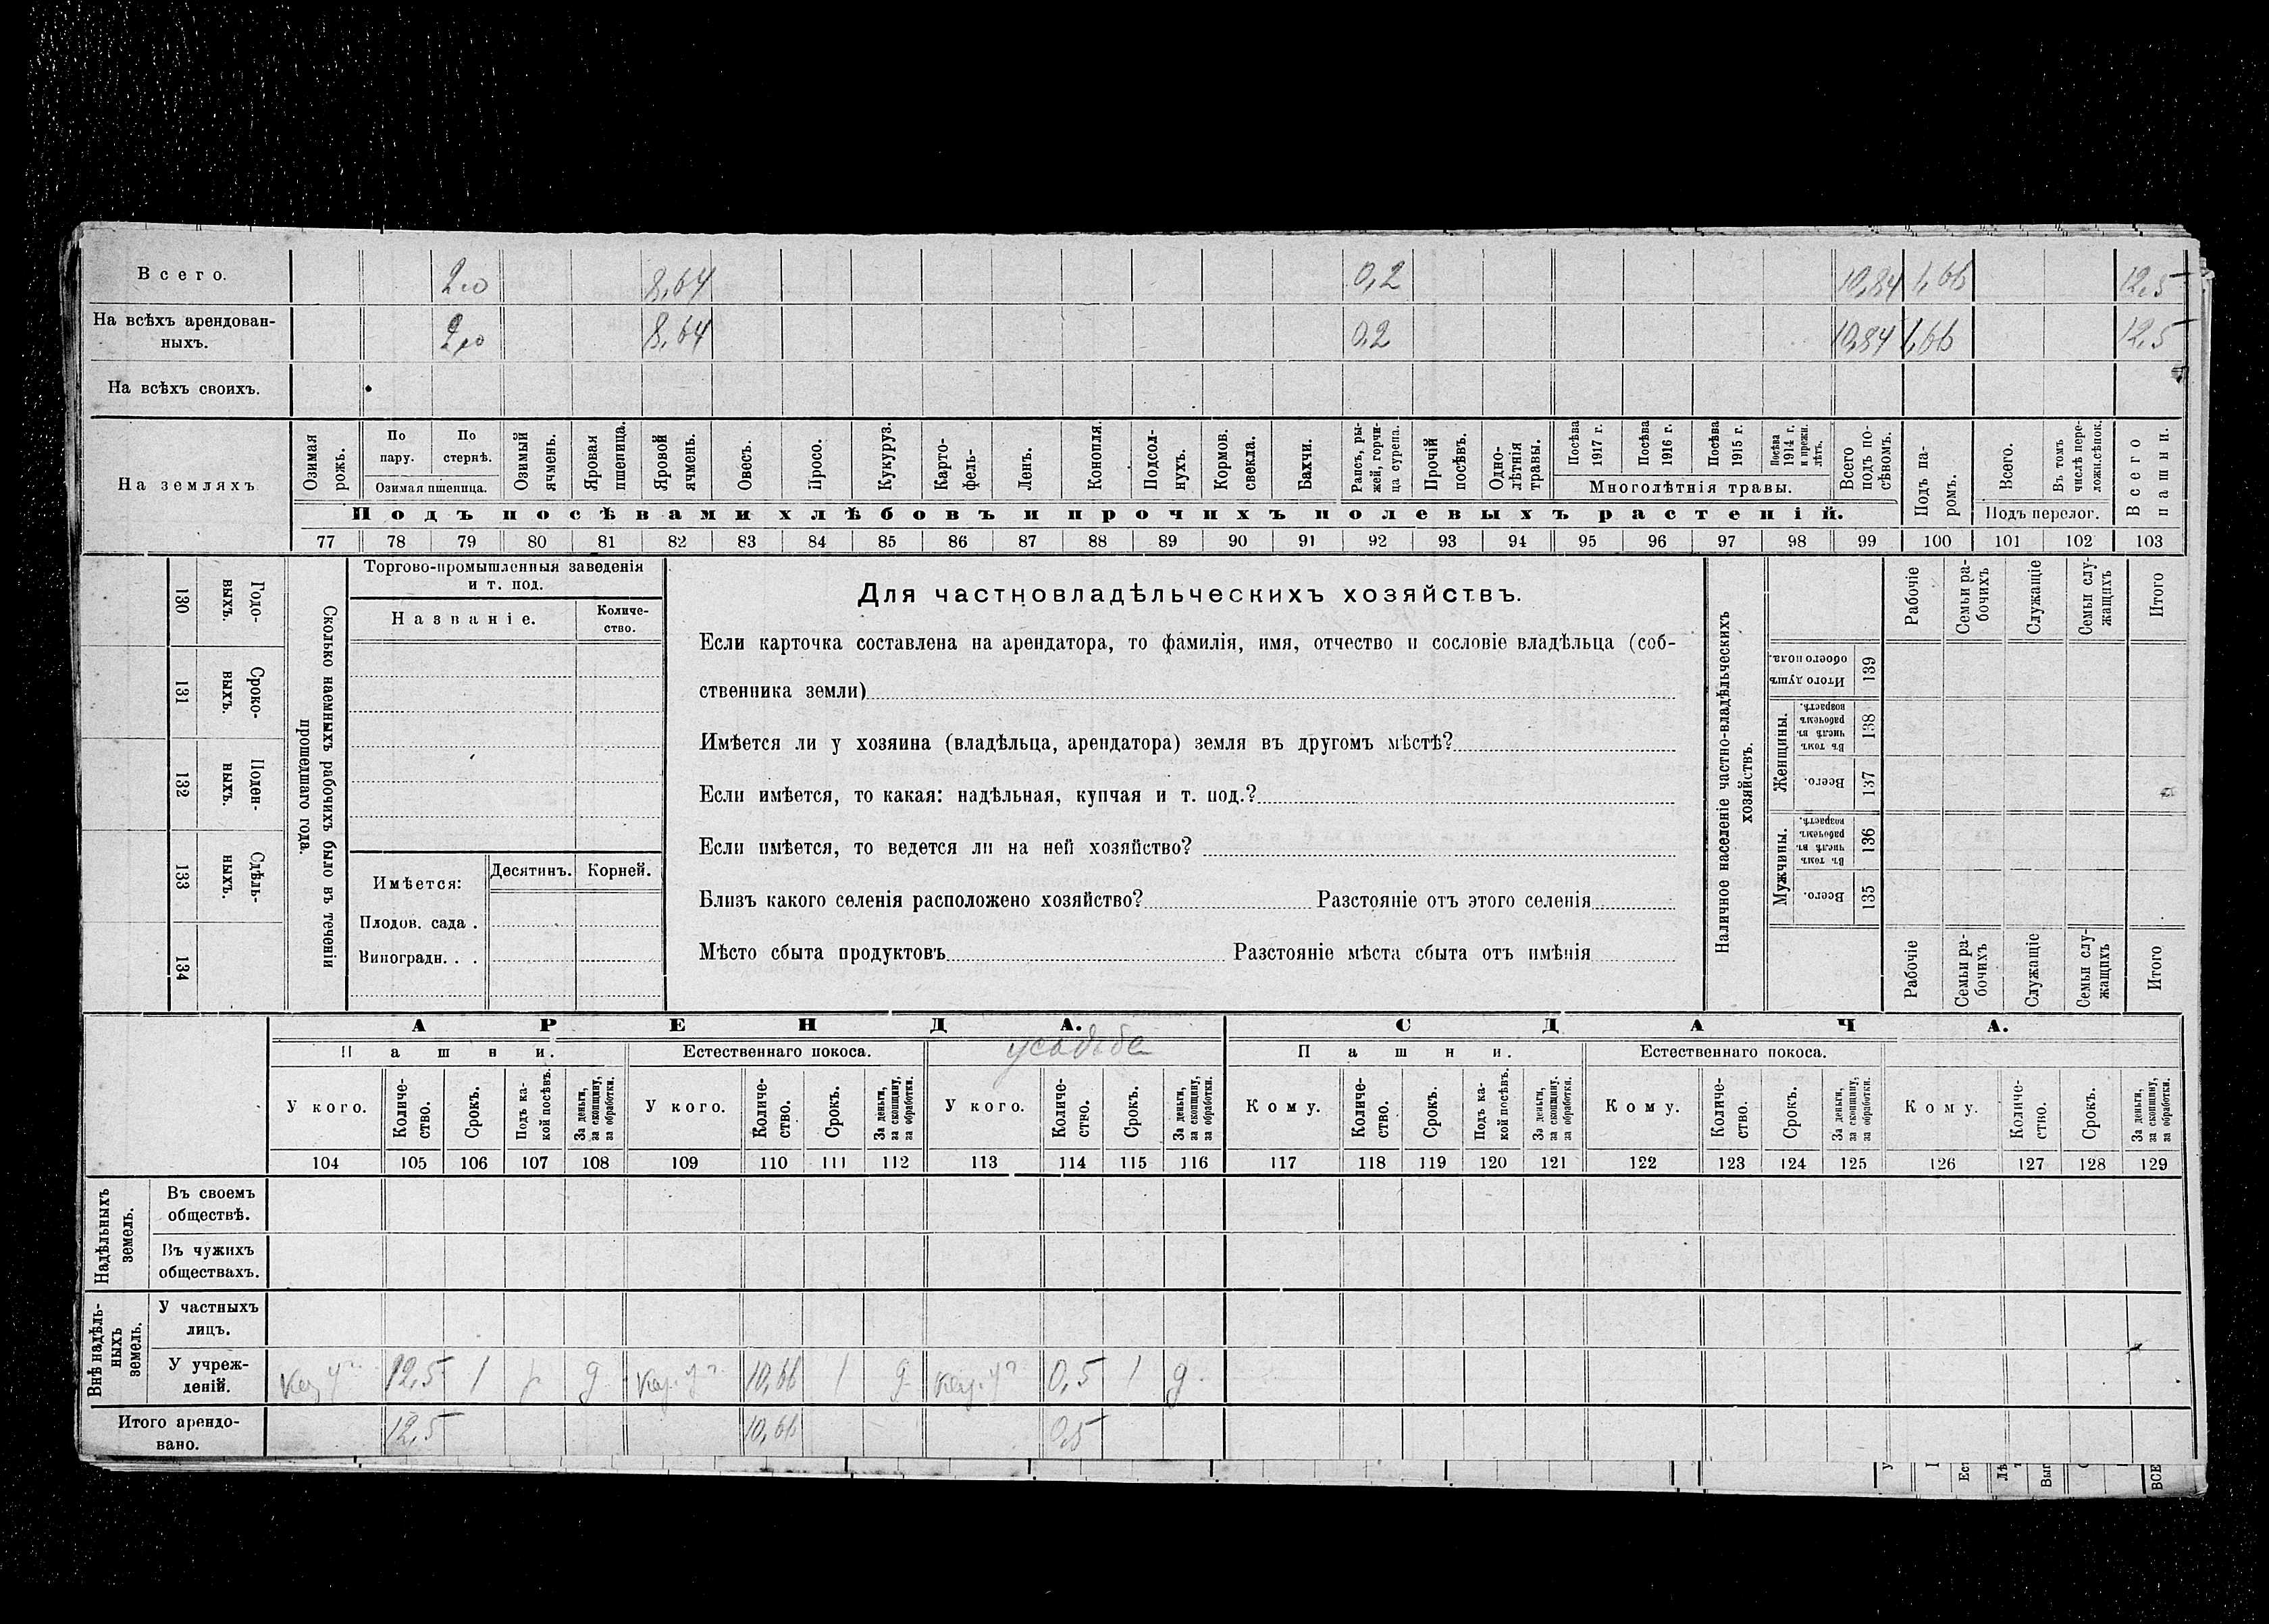 Всего. 2,0 8,64 0,2 10,84 1,66 12,5
На всѣхъ арендован-
ныхъ. 2,0 8,64 0,2 10,84 1,66 12,5
На всѣхъ своихъ.
На земляхъ
Озимая рожь.
По пару.
По стернѣ.
Озимая пшеница.
Озимый ячмень.
Яровая пшеница.
Яровой ячмень.
Овесъ.
Просо.
Кукуруз.
Карто-
фель-
Ленъ.
Конопля.
Подсол-
нухъ.
Кормов. свекла.
Бахчи.
Рапсъ, ры-
жей, горчи-
ца сурепа.
Прочій посѣвъ.
Одно-
лѣтнія травы.
Посѣва 1917 г.
Посѣва 1916 г.
Посѣва 1915 г.
Посѣва 1914 г. и прежн. лѣтъ.
Многолѣтнія травы.
Всего подъ по-
сѣвомъ.
Подъ па-
ромъ.
Всего.
Въ томъ числѣ пере-
ложн.сѣнок.
Подъ перелог.
Всего пашни.
Подъ посѣвами хлѣбовъ и прочихъ полевыхъ растеній.
77 78 79 80 81 82 83 84 85 86 87 88 89 90 91 92 93 94 95 96 97 98 99 100 101 102 103
130 Годо-
выхъ.
131 Сроко-
выхъ.
132 Поден-
ныхъ.
133 Сдѣль-
ныхъ.
134
Сколько наемныхъ рабочихъ было въ теченіи
прошедшаго года.
Торгово-промышленныя заведенія
и т. под.
Названіе.
Количе-
ство.
Имѣется:
Десятинъ. Корней.
Плодов. сада .
Виноградн. . .
Для частновладѣльческихъ хозяйствъ.
Если карточка составлена на арендатора, то фамилія, имя, отчество и сословіе владѣльца (соб-
ственника земли)
Имѣется ли у хозяина (владѣльца, арендатора) земля въ другомъ мѣстѣ?
Если имѣется, то какая: надѣльная, купчая и т. под.?
Если имѣется, то ведется ли на ней хозяйство?
Близъ какого селенія расположено хозяйство? Разстояніе отъ этого селенія
Мѣсто сбыта продуктовъ Разстояніе мѣста сбыта отъ имѣнія
Наличное населеніе частно-владѣльческихъ
хозяйствъ.
Рабочіе
Семьи ра-
бочихъ
Служащіе
Семьи слу-
жащихъ
Итого
Итого душъ обоего пола. 139
Женщины.
Въ томъ числѣ въ рабочемъ возрастѣ. 138
Всего. 137
Мужчины.
Въ томъ числѣ въ рабочемъ возрастѣ. 136
Всего. 135
Рабочіе
Семьи ра-
бочихъ
Служащіе
Семьи слу-
жащихъ
Итого
АРЕНДА. СДАЧА.
Пашни. Естественнаго покоса. усадьба Пашни. Естественнаго покоса.
У кого. Количе-
ство. Срокъ. Подъ ка-
кой посѣвъ. За деньги, за скопщину, за обработки.
У кого. Количе-
ство. Срокъ. За деньги, за скопщину, за обработки.
У кого. Количе-
ство. Срокъ. За деньги, за скопщину, за обработки.
Кому. Количе-
ство. Срокъ. Подъ ка-
кой посѣвъ. За деньги, за скопщину. за обработки.
Кому. Количе-
ство. Срокъ. За деньги, за скопщину, за обработки.
Кому. Количе-
ство. Срокъ. За деньги, за скопщину, за обработки.
104 105 106 107 108 109 110 111 112 113 114 115 116 117 118 119 120 121 122 123 124 125 126 127 128 129
Надѣльныхъ
земель.
Въ своемъ
обществѣ.
Въ чужихъ
обществахъ.
Внѣ надѣль-
ныхъ
земель.
У частныхъ
лицъ.
У учреж-
деній. 12,5 1 д 10,66 1 д 0,5 1 д
Итого арендо-
вано. 12,5 10,66 0,5